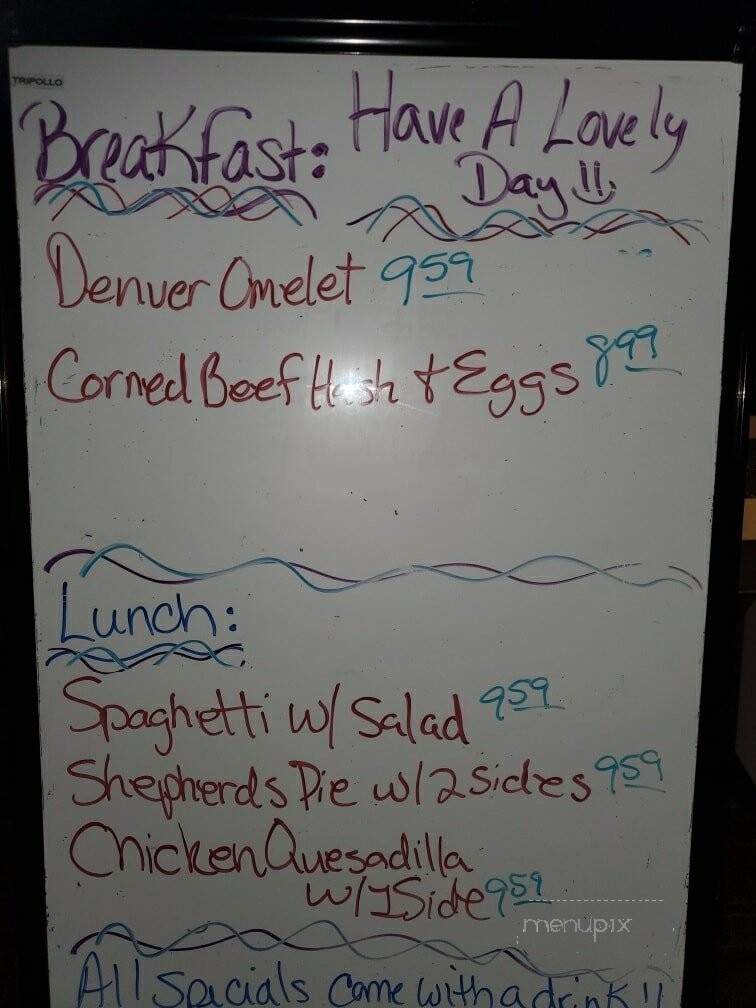 TRIPOLLO
Breakfast: Have A Lovely
Day !!
Denver Omelet 959
Corned Beef Hash + Eggs 899
Lunch:
Spaghetti w/ Salad 959
Shepherds Pie w/ 2 Sides 959
Chicken Quesadilla
w/ 1 Side 959
menupix
All Spacials Come with a drink !!